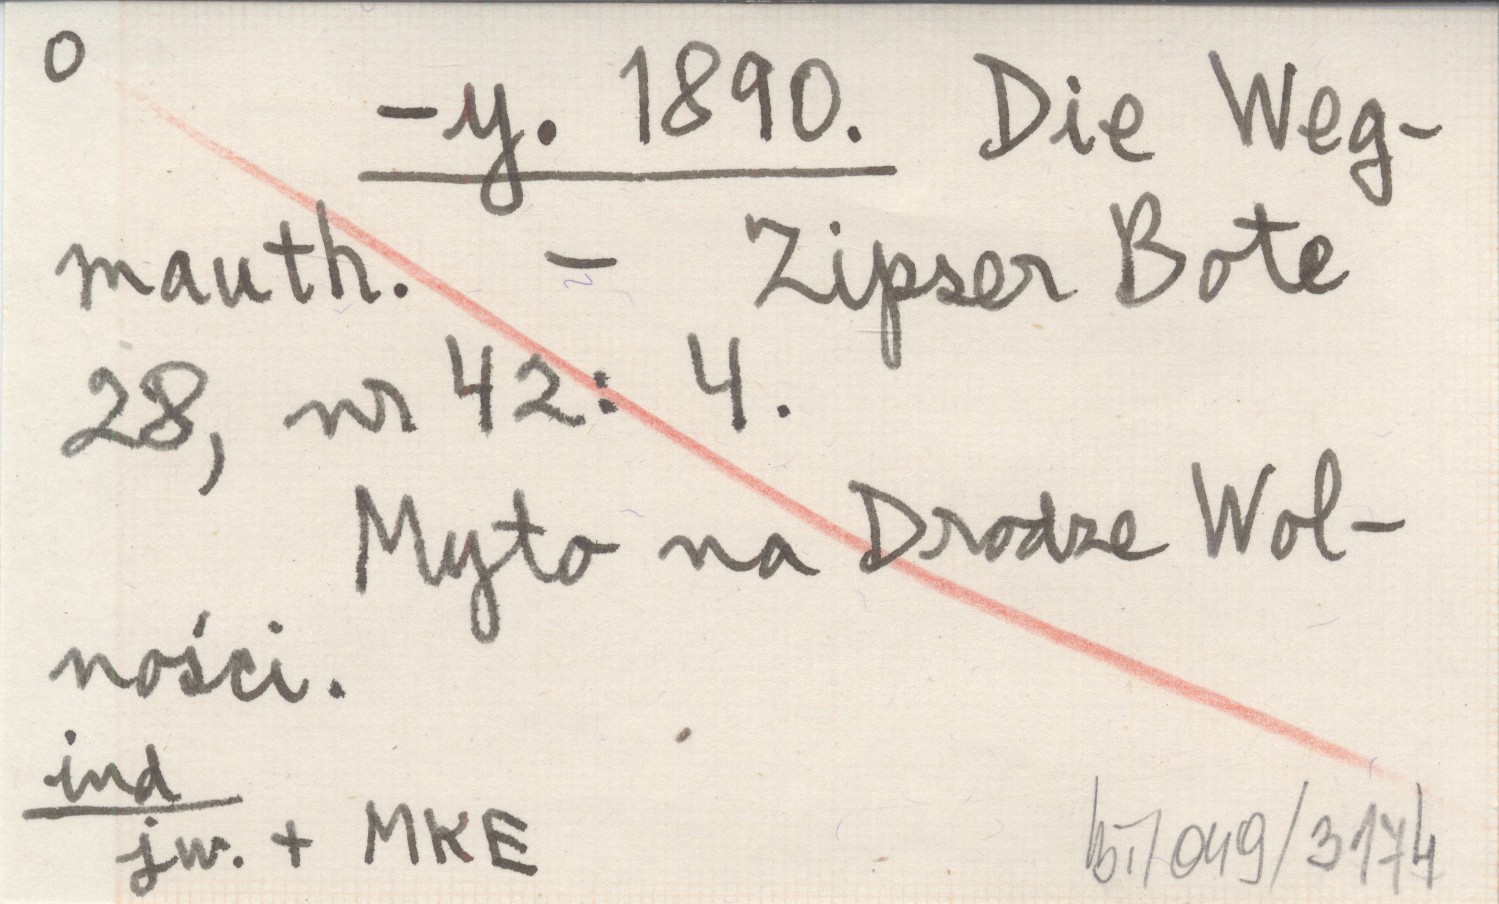 O
-y. 1890. Die Weg-
mauth. - Zipser Bote
28, nr 42: 4.
Myto na Drodze Wol-
ności.
ind
jw. + MKE
bił049/3174